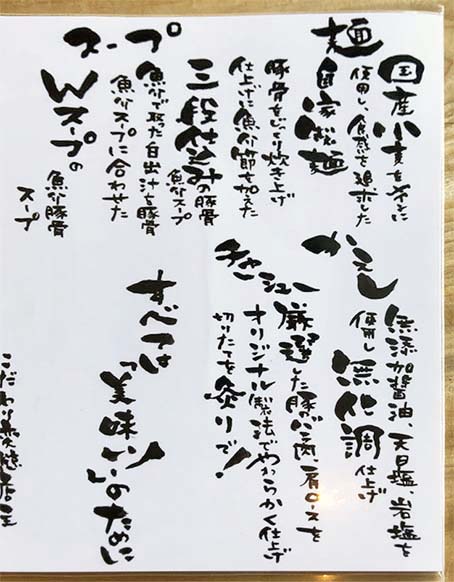 麺
国産小麦をメインに
使用し、食感を追求した
自家製麺
スープ
豚骨をじっくり炊き上げ
仕上げに魚介節を加えた
三段仕込みの豚骨
魚介スープ
魚介で取った白出汁を豚骨
魚介スープに合わせた
Wスープの
魚介豚骨
スープ
かえし
無添加醤油、天日塩、岩塩を
使用し無化調仕上げ
チャーシュー
厳選した豚バラ肉、肩ロースを
オリジナル製法でやわらかく仕上げ
切りたてを炙りで!
すべては
「美味い!」のために
こだわり変態店主